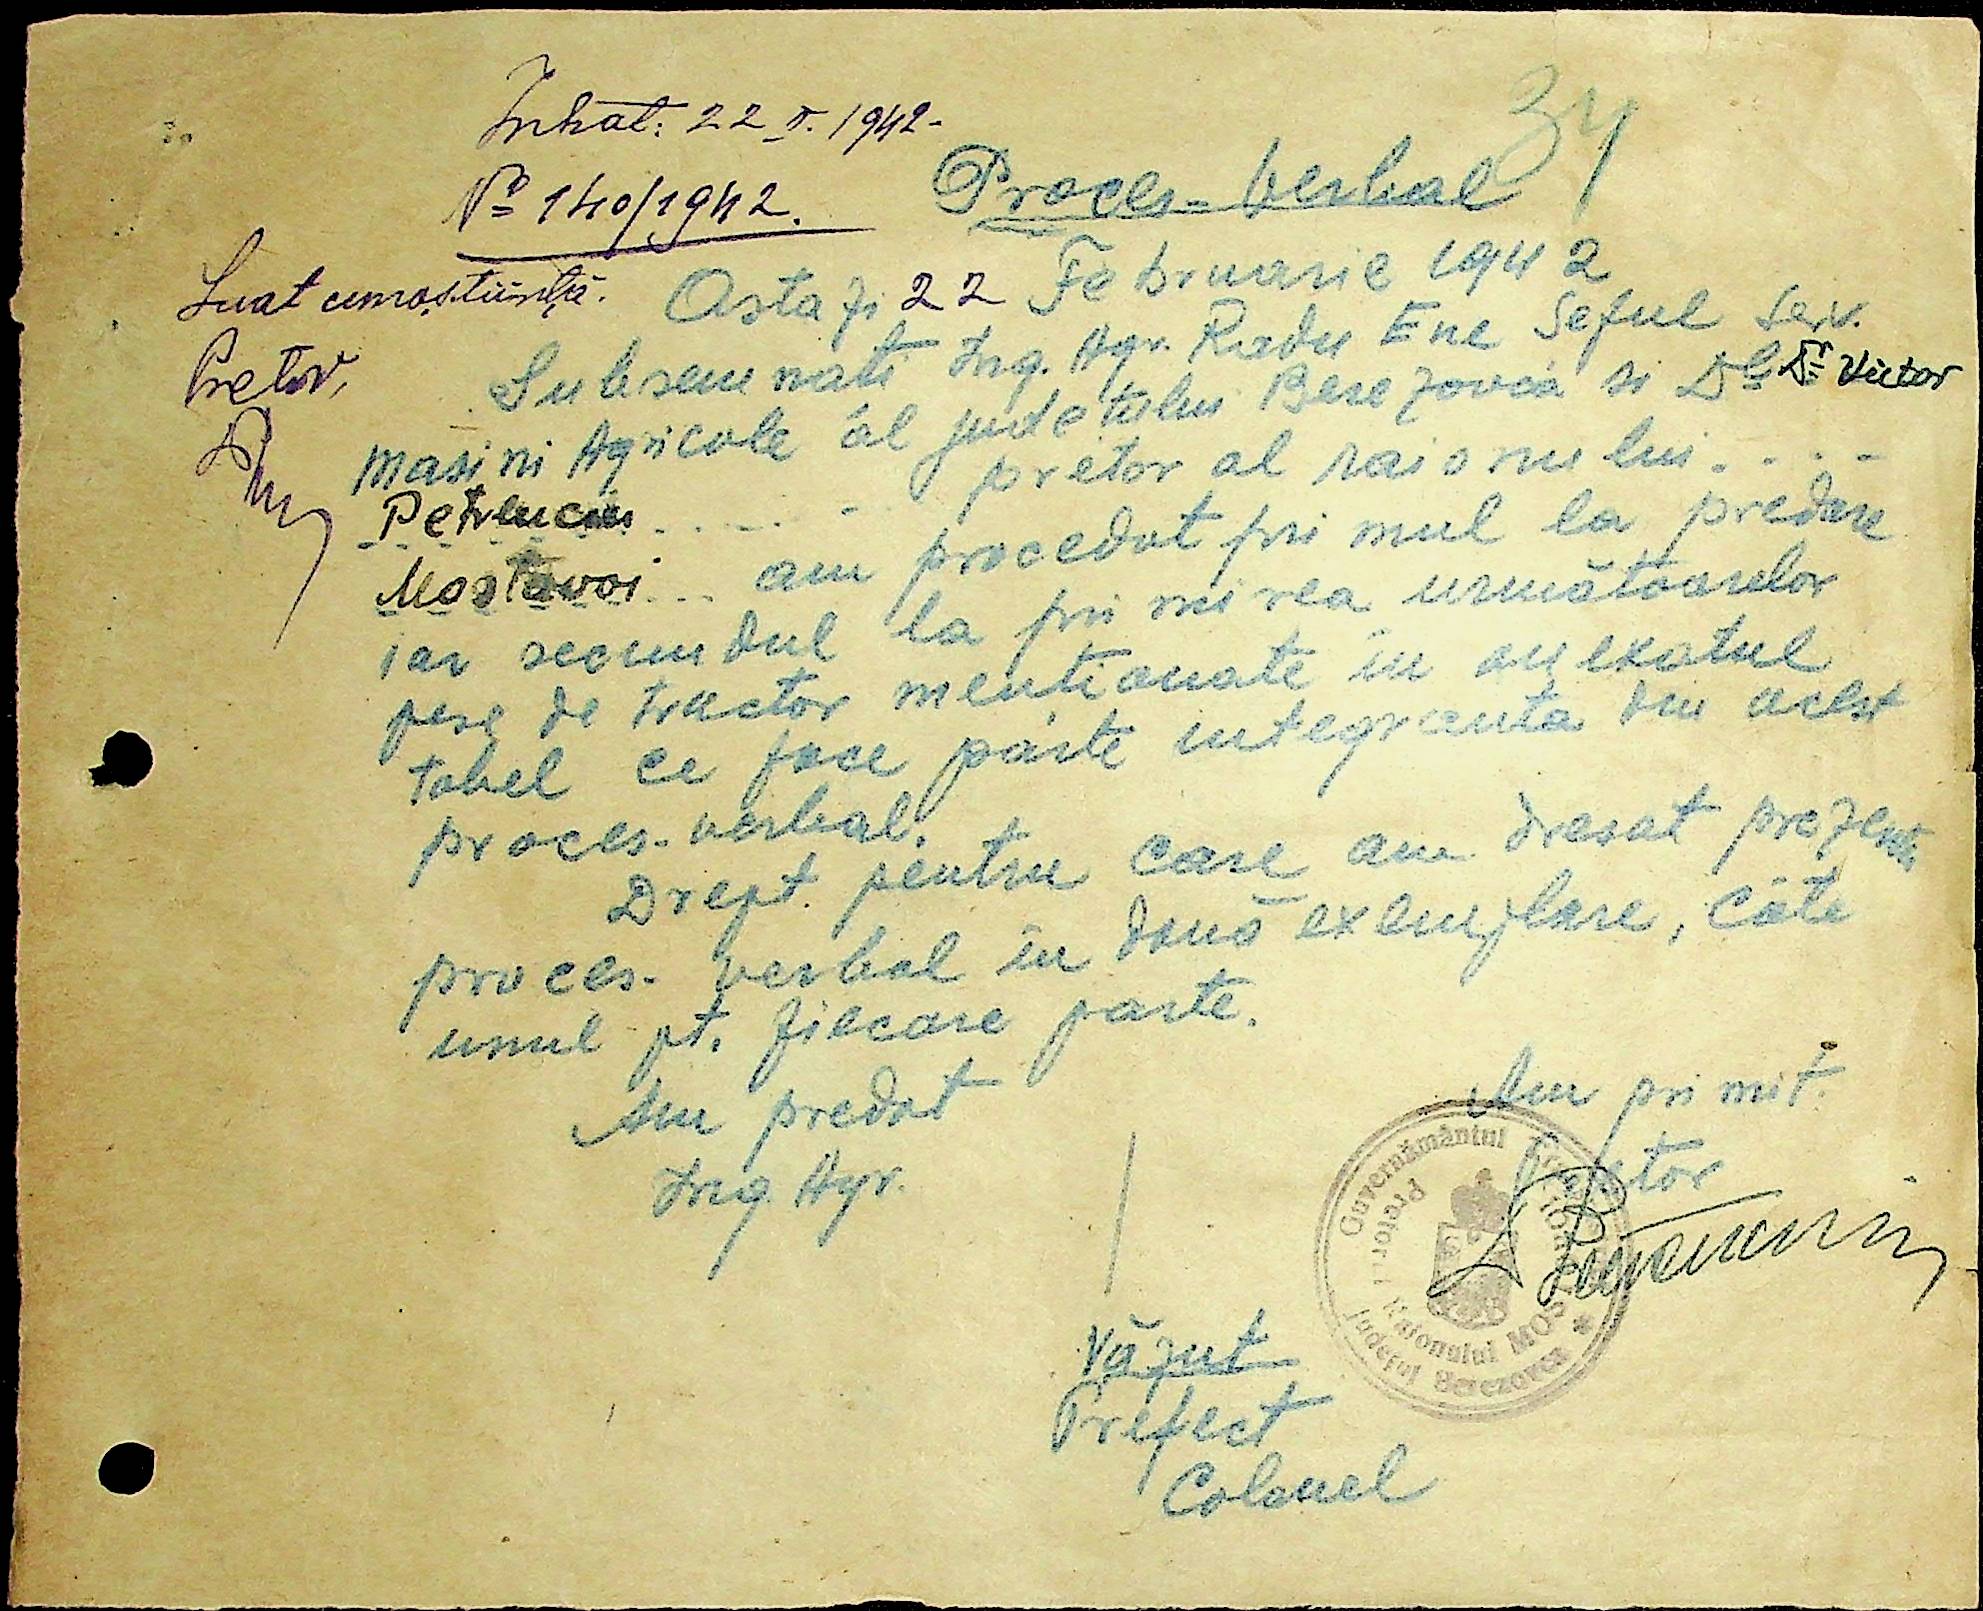 Intrat: 22 II. 1942-
Nº 140/1942.
34
Proces-verbal
Luat cunoștiință.
Pretor,
Astazi 22 Februarie 1942
Subsemnati Ing. Agr. Radu Ene Seful Serv.
Masini Agricole al judetului Berezovca si Dl Dr Victor
Petrenciu . . . . pretor al raionului . . . .
Mostovoi . . . am procedat primul la predare
iar secundul la primirea următoarelor
pese de tractor mentionate în anexatul
tabel ce face parte integranta din acest
proces-verbal.
Drept pentru care am dresat prezentu
proces-verbal în două exemplare, câte
unul pt. fiecare parte.
Am predat
Ing. Agr.
Am primit.
Pretor
Guvernământul
Pretor Raionului MOS
Județul Berezovca *
Văzut
Prefect
Colonel